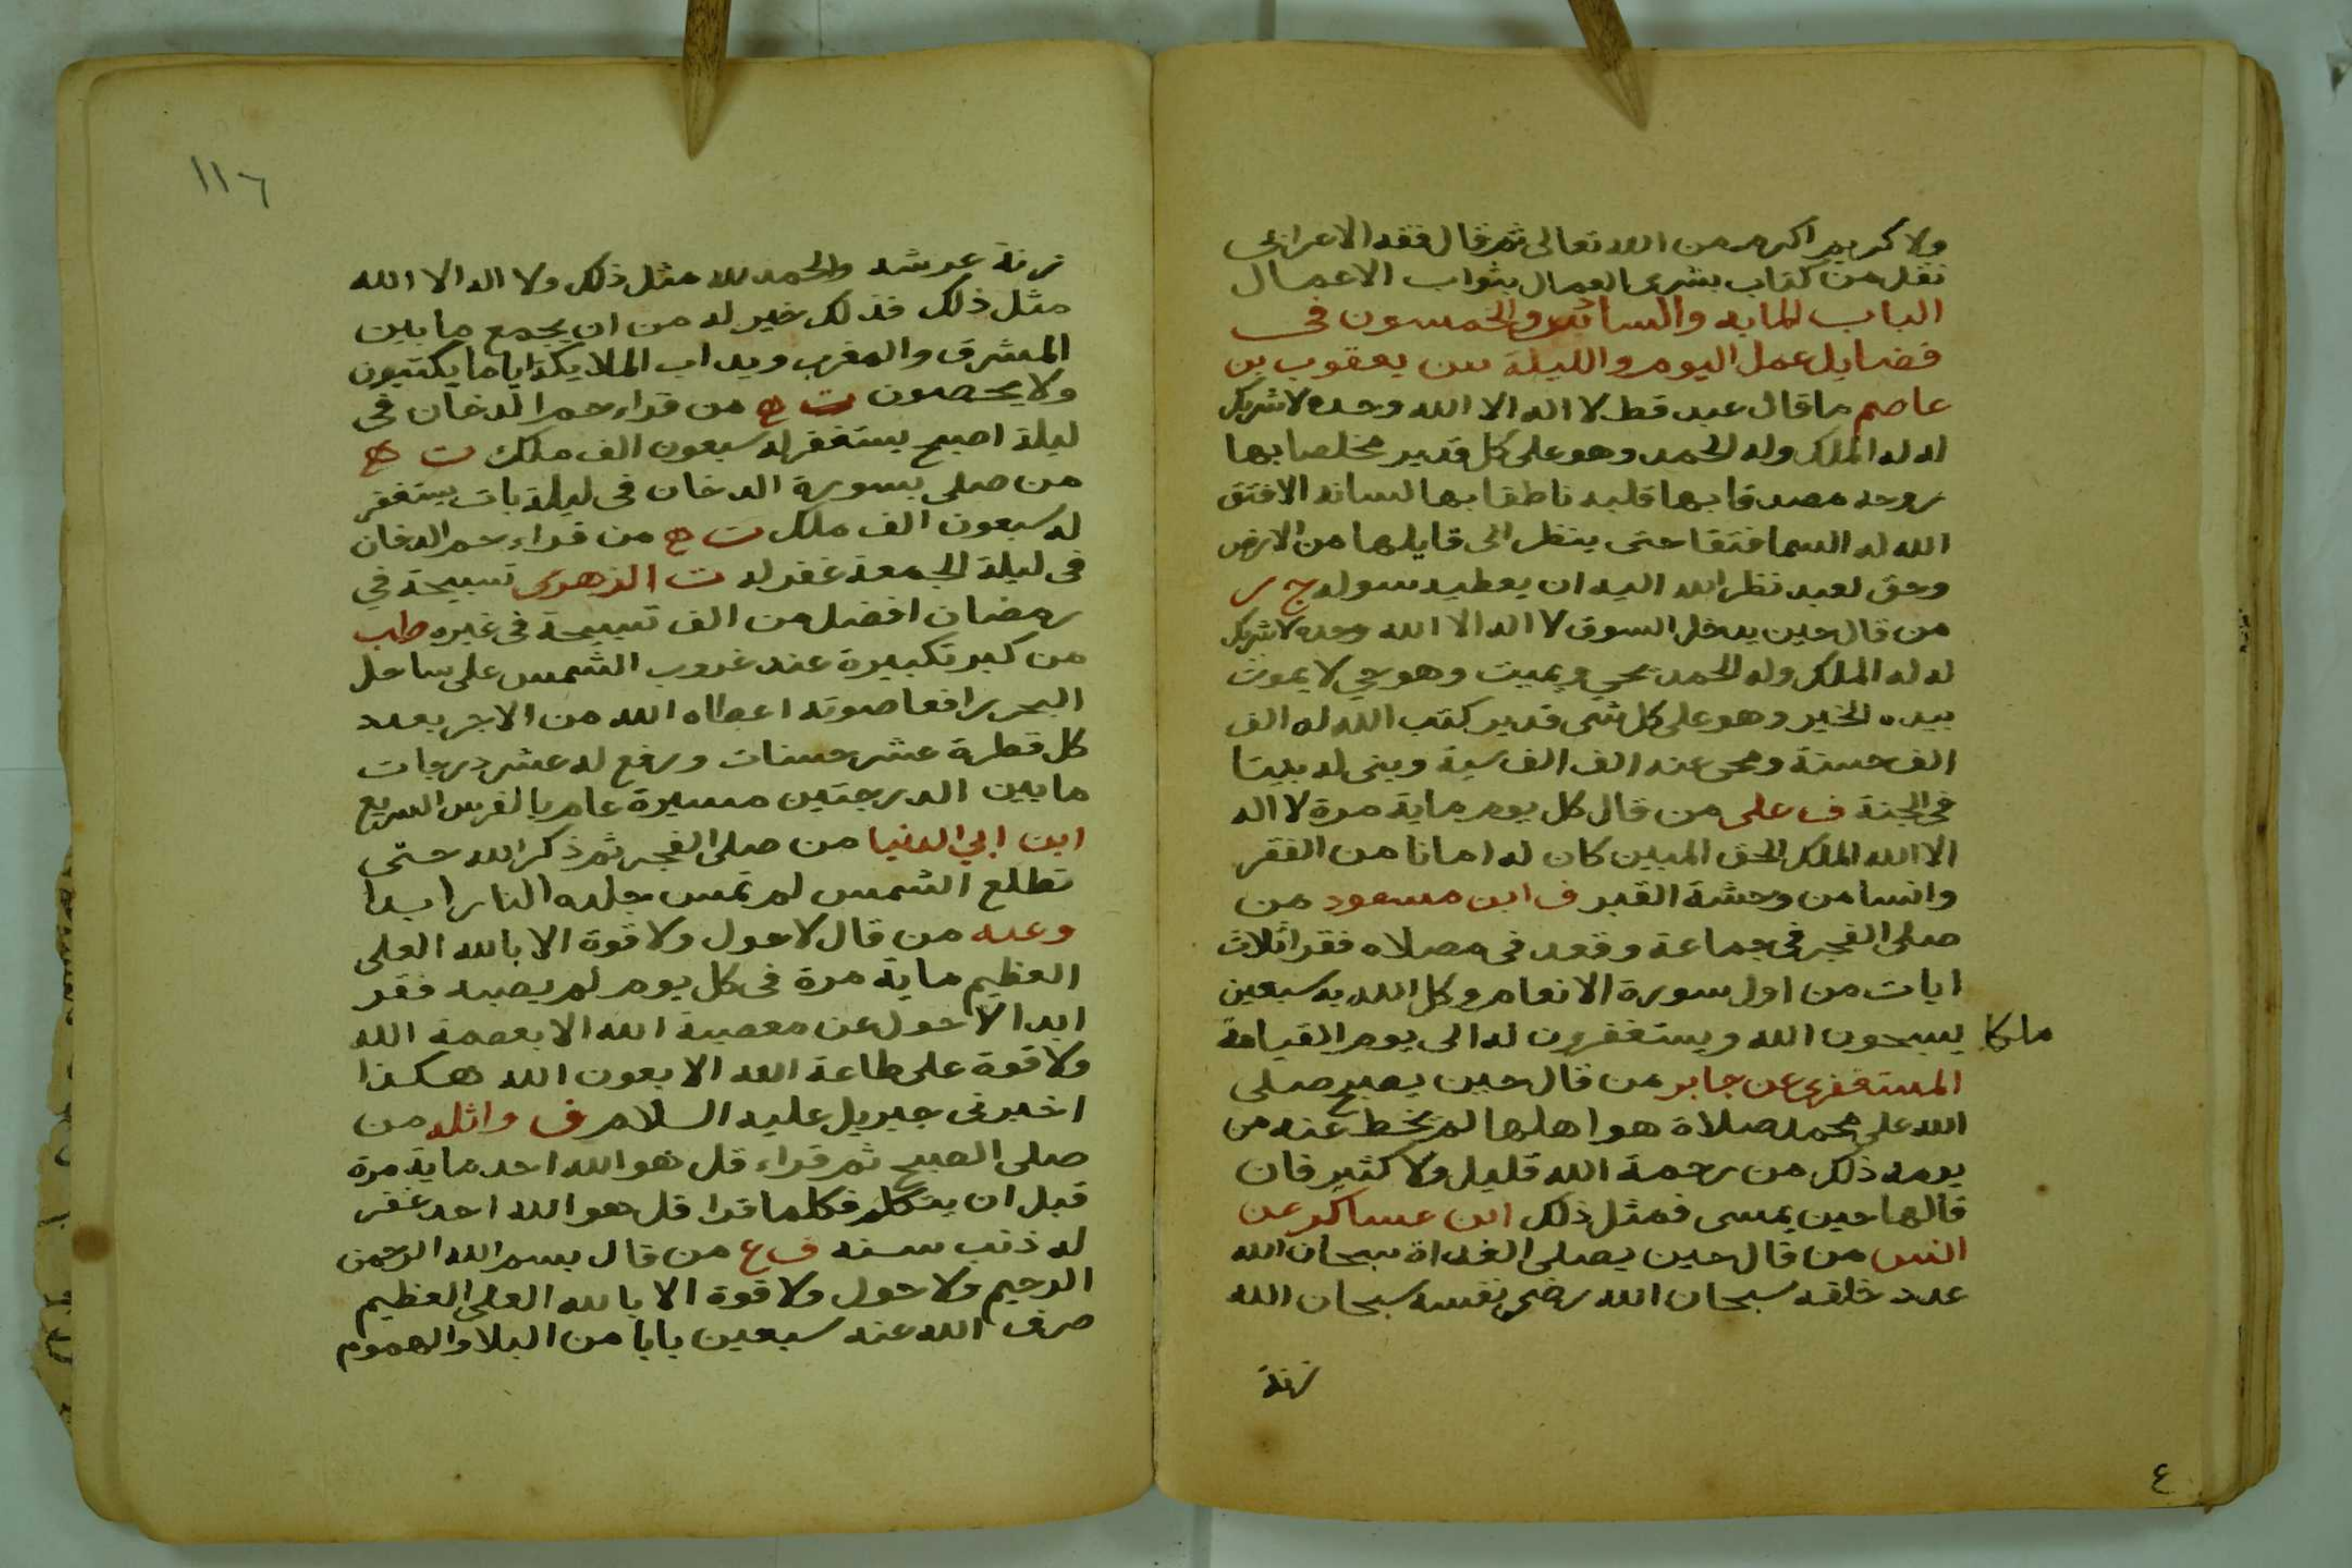 ولا كريم اكرم من الله تعالى ثم قال فقه الاعرابي
نقل من كتاب بشرى العمال بثواب الاعمال
الباب المايه والسادس والخمسون فى
فضايل عمل اليوم والليلة س يعقوب بن
عاصم ما قال عبد قط لا اله الا الله وحده لا شريك
له له الملك وله الحمد وهو على كل قدير مخلصا بها
روحه مصدقا بها قلبه ناطقا بها لسانه الا فتق
الله له السما فتقا حتى ينظر الى قايلها من الارض
وحق لعبد نظر الله اليه ان يعطيه سوله ج ر
من قال حين يدخل السوق لا اله الا الله وحده لا شريك
له له الملك وله الحمد يحي ويميت وهو حي لا يموت
بيده الخير وهو على كل شى قدير كتب الله له الف
الف حسنة ومحى عنه الف الف سية وبنى له بيتا
فى الجنة ف على من قال كل يوم ماية مرة لا اله
الا الله الملك الحق المبين كان له امانا من الفقر
وانسا من وحشة القبر ف ابن مسعود من
صلى الفجر فى جماعة وقعد فى مصلاه فقرا ثلاث
ايات من اول سورة الانعام وكل الله به سبعين
ملكا يسبحون الله ويستغفرون له الى يوم القيامة
المستغفرى عن جابر من قال حين يصبح صلى
الله على محمد صلاة هو اهلها لم تخط عنه من
يومه ذلك من رحمة الله قليل ولا كثير فان
قالها حين يمسى فمثل ذلك ابن عساكر عن
انس من قال حين يصلى الغداة سبحان الله
عدد خلقه سبحان الله رضى نفسه سبحان الله
زنة
٤
١١٦
زنة عرشه والحمد لله مثل ذلك ولا اله الا الله
مثل ذلك فذلك خير له من ان يجمع ما بين
المشرق والمغرب ويداب الملايكة اياما يكتبون
ولا يحصون ت ه من قراء حم الدخان فى
ليلة اصبح يستغفر له سبعون الف ملك ت ه
من صلى بسورة الدخان فى ليلة بات يستغفر
له سبعون الف ملك ت ه من قراء حم الدخان
فى ليلة الجمعة غفر له ت الزهرى تسبيحة في
رمضان افضل من الف تسبيحة فى غيره طب
من كبر تكبيرة عند غروب الشمس على ساحل
البحر رافعا صوته اعطاه الله من الاجر بعدد
كل قطرة عشر حسنات ورفع له عشر درجات
ما بين الدرجتين مسيرة عام بالفرس السريع
ابن ابي الدنيا من صلى الفجر ثم ذكر الله حتى
تطلع الشمس لم تمس جلده النار ابدا
وعنه من قال لا حول ولا قوة الا بالله العلى
العظيم ماية مرة فى كل يوم لم يصبه فقر
ابدا لا حول عن معصية الله الا بعصمة الله
ولا قوة على طاعة الله الا بعون الله هكذا
اخبرنى جبريل عليه السلام ف واثله من
صلى الصبح ثم قراء قل هو الله احد ماية مرة
قبل ان يتكلم فكلما قرا قل هو الله احد غفر
له ذنب سنه ف ع من قال بسم الله الرحمن
الرحيم ولا حول ولا قوة الا بالله العلى العظيم
صرف الله عنه سبعين بابا من البلا والهموم